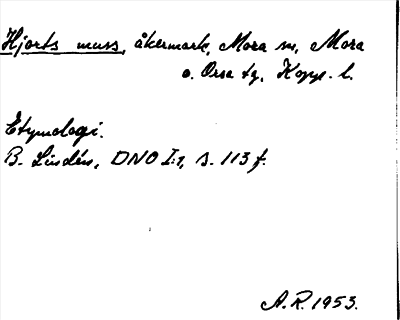 Hjorts muss, åkermark, Mora sn, Mora
o. Orsa tg, Kopp. l.
Etymologi.
B. Lindén, DNO I:1, s. 113 f.
A.R. 1953.